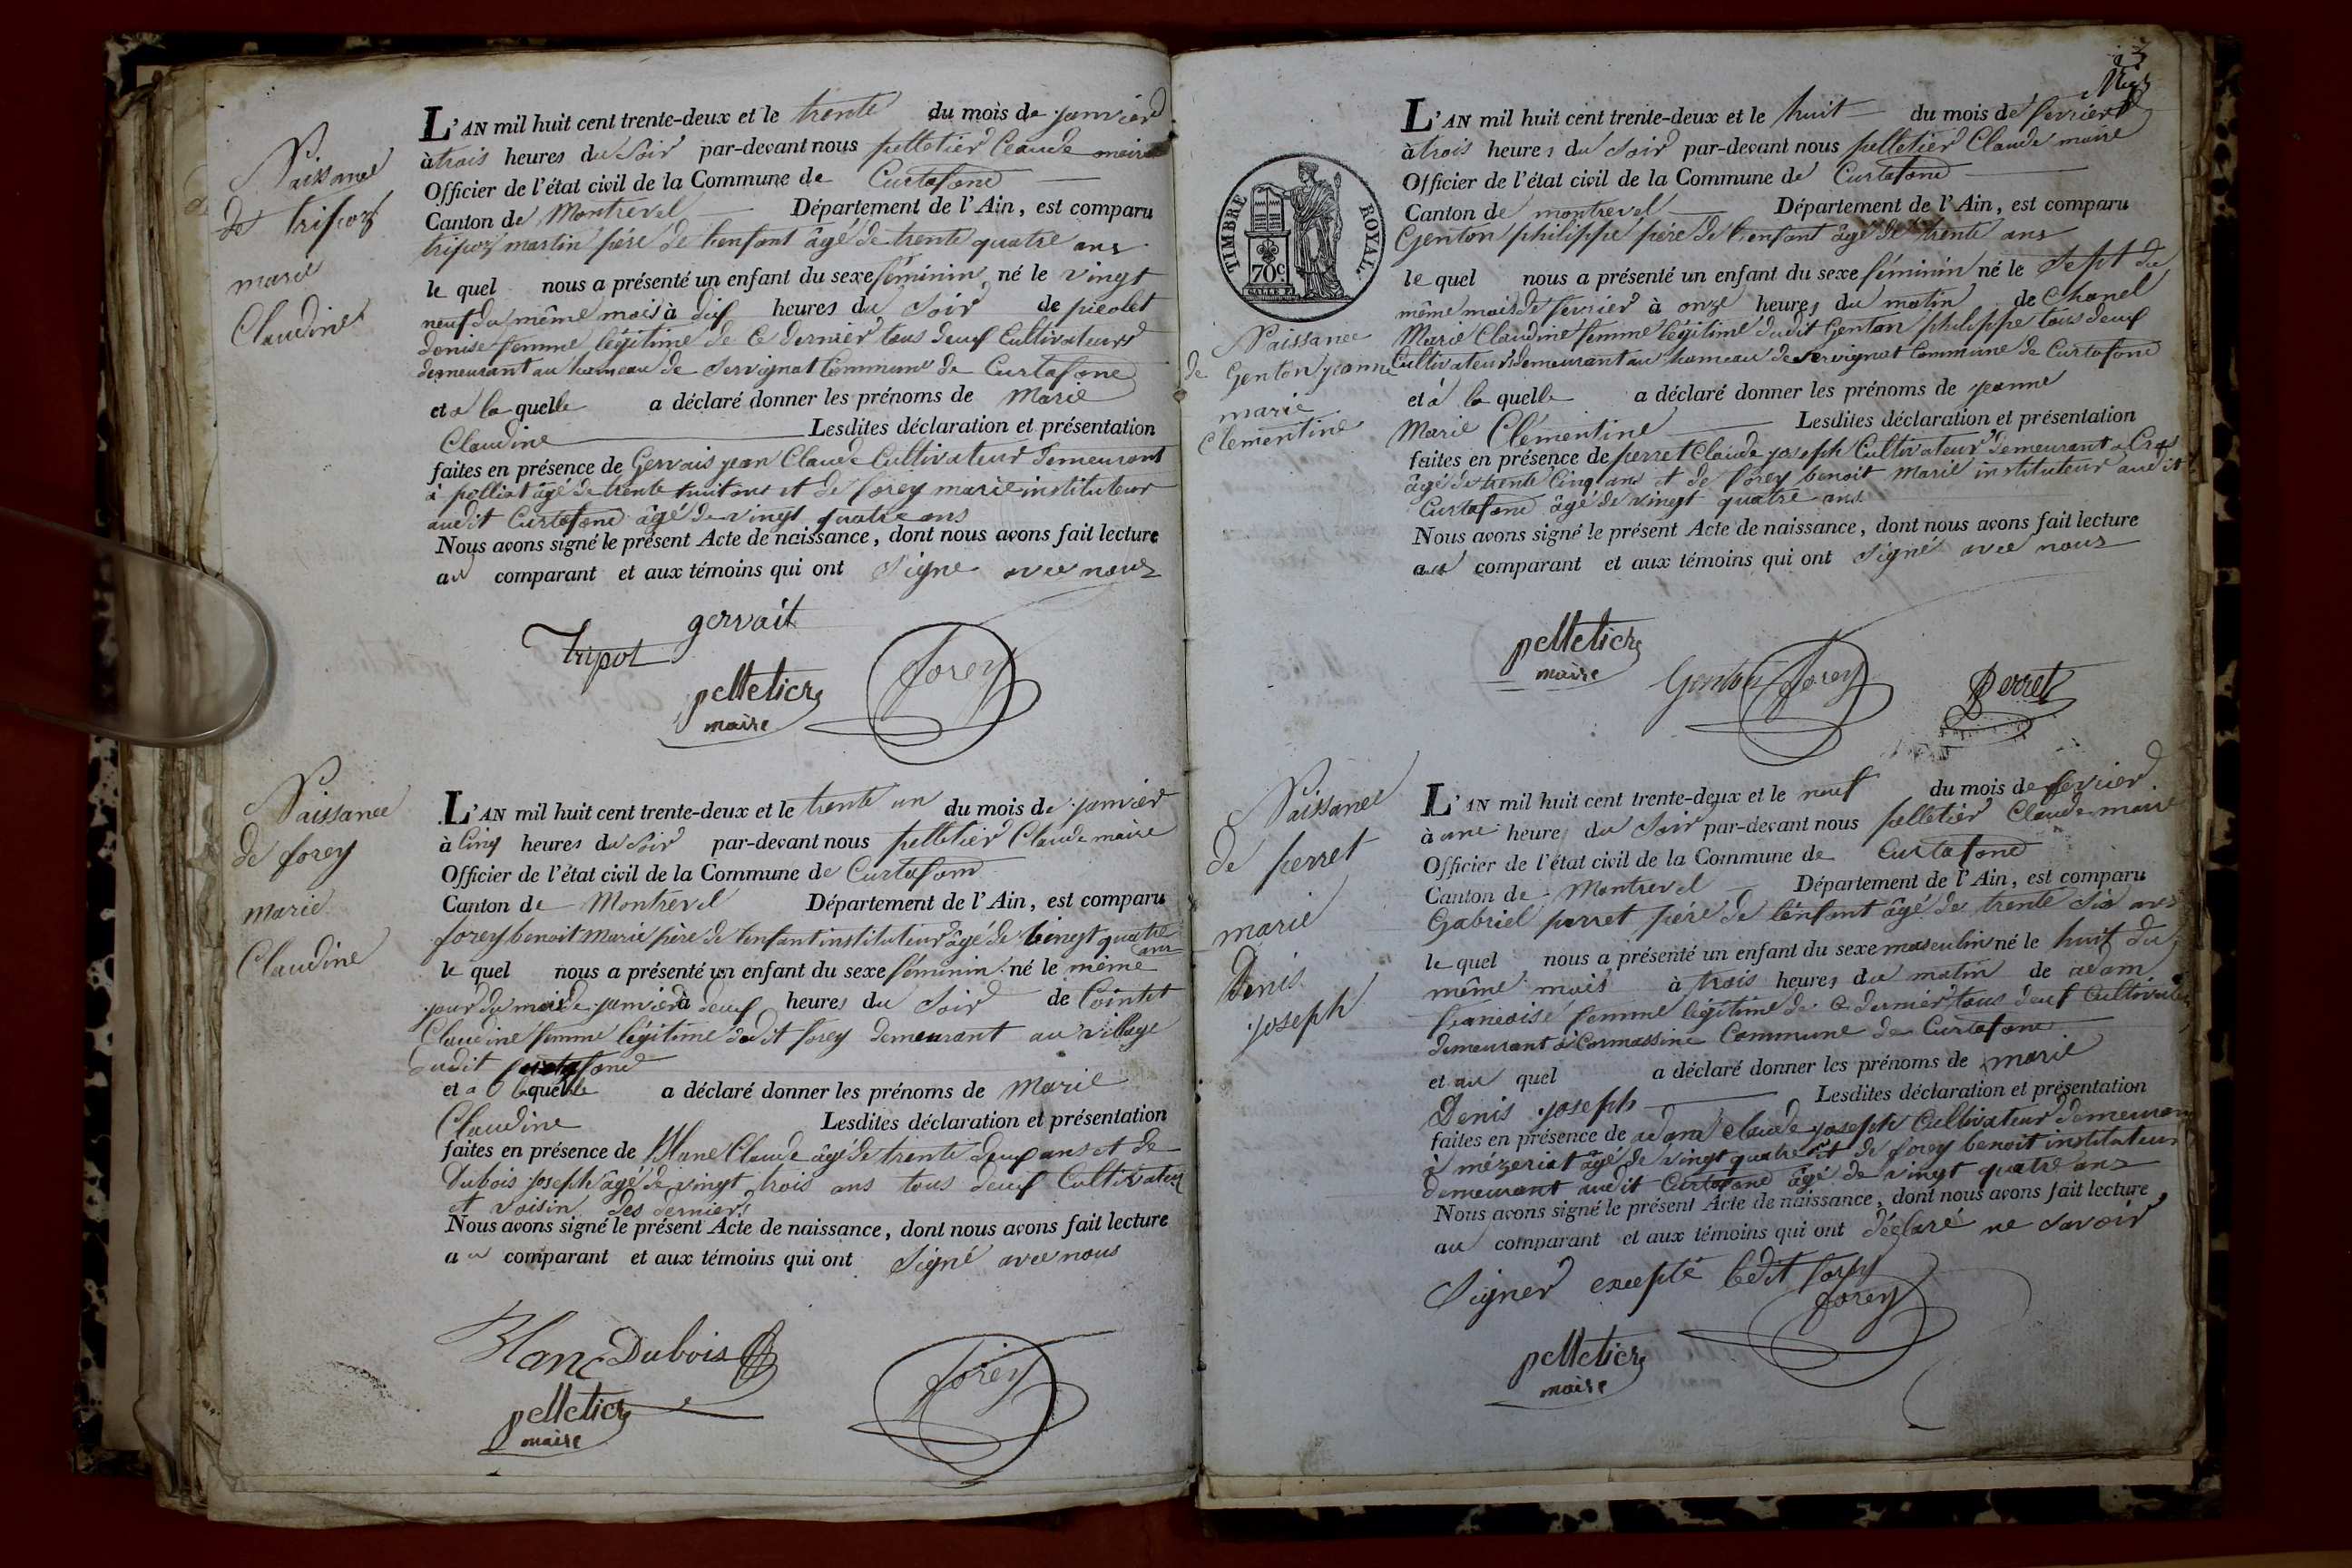 Naissance
de tripoz
marie
Claudine
L'AN mil huit cent trente-deux et le trente du mois de janvier
à trois heures du Soir par-devant nous pelletier Claude maire
Officier de l'état civil de la Commune de Curtafond
Canton de Montrevel Département de l'Ain, est comparu
tripoz martin père de l'enfant âgé de trente quatre ans
le quel nous a présenté un enfant du sexe féminin né le vingt
neuf du même mois à dix heures du Soir de picolet
denise femme légitime de Ce dernier tous deux Cultivateurs
demeurant au hameau de Servignat Commune de Curtafond
et à la quelle a déclaré donner les prénoms de Marie
Claudine Lesdites déclaration et présentation
faites en présence de Gervais jean Claude Cultivateur demeurant
à polliat âgé de trente huit ans et de forey marie instituteur
audit Curtafond âgé de vingt quatre ans
Nous avons signé le présent Acte de naissance, dont nous avons fait lecture
au comparant et aux témoins qui ont Signé avec nous
gervait
Tripot
pelletier
maire
forey
Naissance
de forey
marie
Claudine
L'AN mil huit cent trente-deux et le trente un du mois de janvier
à Cinq heures du Soir par-devant nous pelletier Claude maire
Officier de l'état civil de la Commune de Curtafond
Canton de Montrevel Département de l'Ain, est comparu
forey benoit Marie père de l'enfant instituteur âgé de vingt quatre
ans
le quel nous a présenté un enfant du sexe féminin né le même
jour du mois de janvier à deux heures du Soir de Cointet
Claudine femme légitime dudit forey demeurant au village
dudit Curtafond
et a laquelle a déclaré donner les prénoms de Marie
Claudine Lesdites déclaration et présentation
faites en présence de Blanc Claude âgé de trente deux ans et de
Dubois joseph âgé de vingt trois ans tous deux Cultivateur
et voisin des derniers
Nous avons signé le présent Acte de naissance, dont nous avons fait lecture
au comparant et aux témoins qui ont Signé avec nous
Blanc Dubois
pelletier
maire
forey
TIMBRE ROYAL.
70c
Naissance
de Genton jeanne
marie
Clementine
L'AN mil huit cent trente-deux et le huit du mois de fevrier
à trois heures du Soir par-devant nous pelletier Claude maire
Officier de l'état civil de la Commune de Curtafond
Canton de montrevel Département de l'Ain, est comparu
Genton philippe père de l'enfant âgé de trente ans
le quel nous a présenté un enfant du sexe féminin né le Sept du
même mois de fevrier à onze heures du matin de Chanel
Marie Claudine femme légitime dudit Genton philippe tous deux
Cultivateurs demeurant au hameau de Servignat Commune de Curtafond
et à la quelle a déclaré donner les prénoms de jeanne
Marie Clémentine Lesdites déclaration et présentation
faites en présence de perret Claude joseph Cultivateur demeurant à Cras
âgé de trente Cinq ans et de forey benoit Marie instituteur audit
Curtafond âgé de vingt quatre ans
Nous avons signé le présent Acte de naissance, dont nous avons fait lecture
au comparant et aux témoins qui ont Signé avec nous
pelletier
maire
Genton forey
Perret
Naissance
de perret
marie
Denis
joseph
L'AN mil huit cent trente-deux et le neuf du mois de fevrier
à une heure du Soir par-devant nous pelletier Claude maire
Officier de l'état civil de la Commune de Curtafond
Canton de Montrevel Département de l'Ain, est comparu
Gabriel perret père de l'enfant âgé de trente Six ans
le quel nous a présenté un enfant du sexe masculin né le huit du
même mois à trois heures du matin de adam
françoise femme légitime de Ce dernier tous deux Cultivateurs
demeurant à Cormassine Commune de Curtafond
et au quel a déclaré donner les prénoms de marie
Denis joseph Lesdites déclaration et présentation
faites en présence de adam claude joseph Cultivateur demeurant
à mézeriat âgé de vingt quatre et de forey benoit instituteur
demeurant audit Curtafond âgé de vingt quatre ans
Nous avons signé le présent Acte de naissance, dont nous avons fait lecture
au comparant et aux témoins qui ont déclaré ne Savoir
Signer excepté ledit forey
forey
pelletier
maire